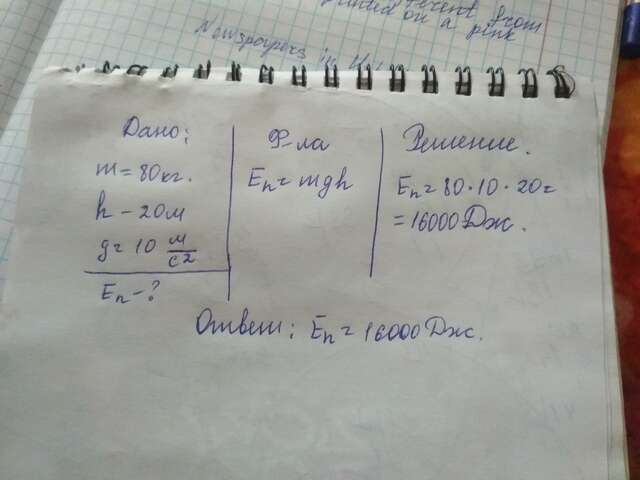 printed
on a pink
Newspapers in
Дано:
m = 80 кг.
h - 20 м
g = 10 м/с²
Eп - ?
Ф-ла
Eп = mgh
Решение.
Eп = 80 · 10 · 20 =
= 16000 Дж.
Ответ: Eп = 16000 Дж.